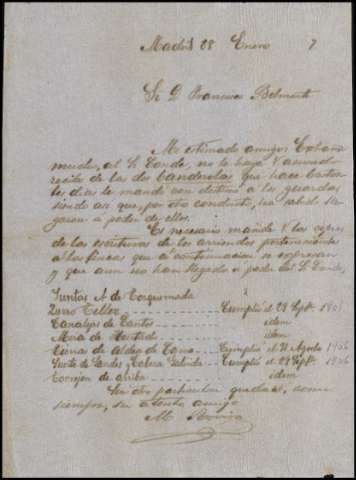 Madrid 28 Enero 7
Sr D. Francisco Belmonte
Mi estimado amigo: Extraña
mucho al S. Conde, no le haya V anunciado
recibo de las dos banderolas que hace bastan
tes dias le mandé con destino a los guardas,
siendo asi que, por otro conducto, ha sabido lle
garon a poder de ellos.
Es necesario mande V las copias
de las escrituras de los arriendos pertenecientes
a las fincas que a continuacion se expresan
y que aun no han llegado a poder del S. Conde,
Juntas A. de Torquemada
Tello Cumplió el 29 Sept.
Canalejas de idem
de Hurtado idem
Tierras de Aldea de Cumplió el 31 Agosto 1906
Cumplió el 29 Sept. 1906
Torrejon de idem
Sin otro particular queda, como
siempre, su atento amigo
M.